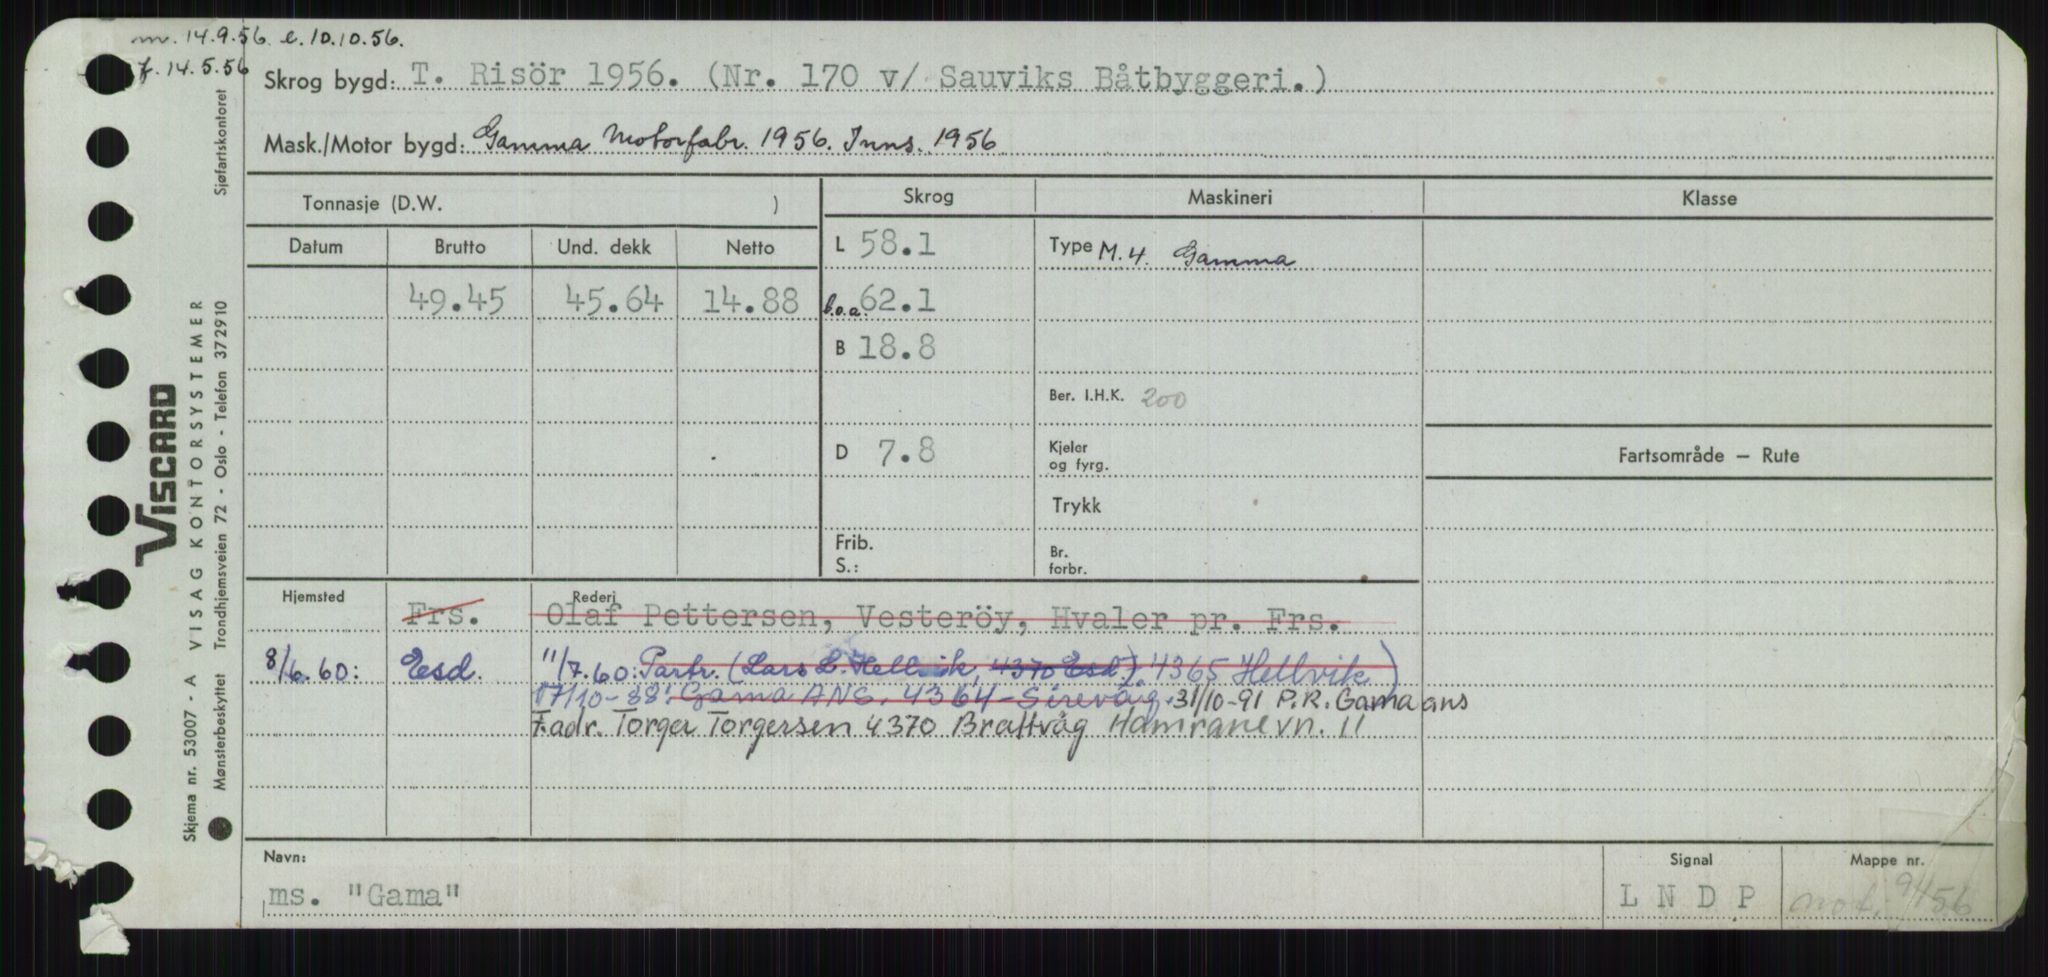 m. 14.9.56. e. 10.10.56.
f. 14.5.56
Skrog bygd: T. Risör 1956. (Nr. 170 v/ Sauviks Båtbyggeri.)
Mask./Motor bygd: Gamma Motorfabr. 1956. Inns. 1956
Tonnasje (D.W. ) Skrog Maskineri Klasse
Datum Brutto Und. dekk Netto L 58.1 Type M.4. Gamma
49.45 45.64 14.88 b.o.a. 62.1
B 18.8
Ber. I.H.K. 200
D 7.8 Kjeler og fyrg. Fartsområde — Rute
Trykk
Frib. Br.
S.: forbr.
Hjemsted Rederi
Frs. Olaf Pettersen, Vesteröy, Hvaler pr. Frs.
8/6.60: Esd. 11/7.60: Partr. (Lars L. Hellvik, 4370 Esd.) 4365 Hellvik)
17/10-88: Gama ANS, 4364-Sirevåg. 31/10-91 P.R. Gama ans
F.adr. Torger Torgersen 4370 Brattvåg Hamranevn. 11
Navn: Signal Mappe nr.
ms. "Gama" L N D P mot. 94/56
Sjøfartskontoret
VISCARD
VISAG KONTORSYSTEMER
Trondhjemsveien 72 - Oslo - Telefon 372910
Skjema nr. 53007 - A
Mønsterbeskyttet